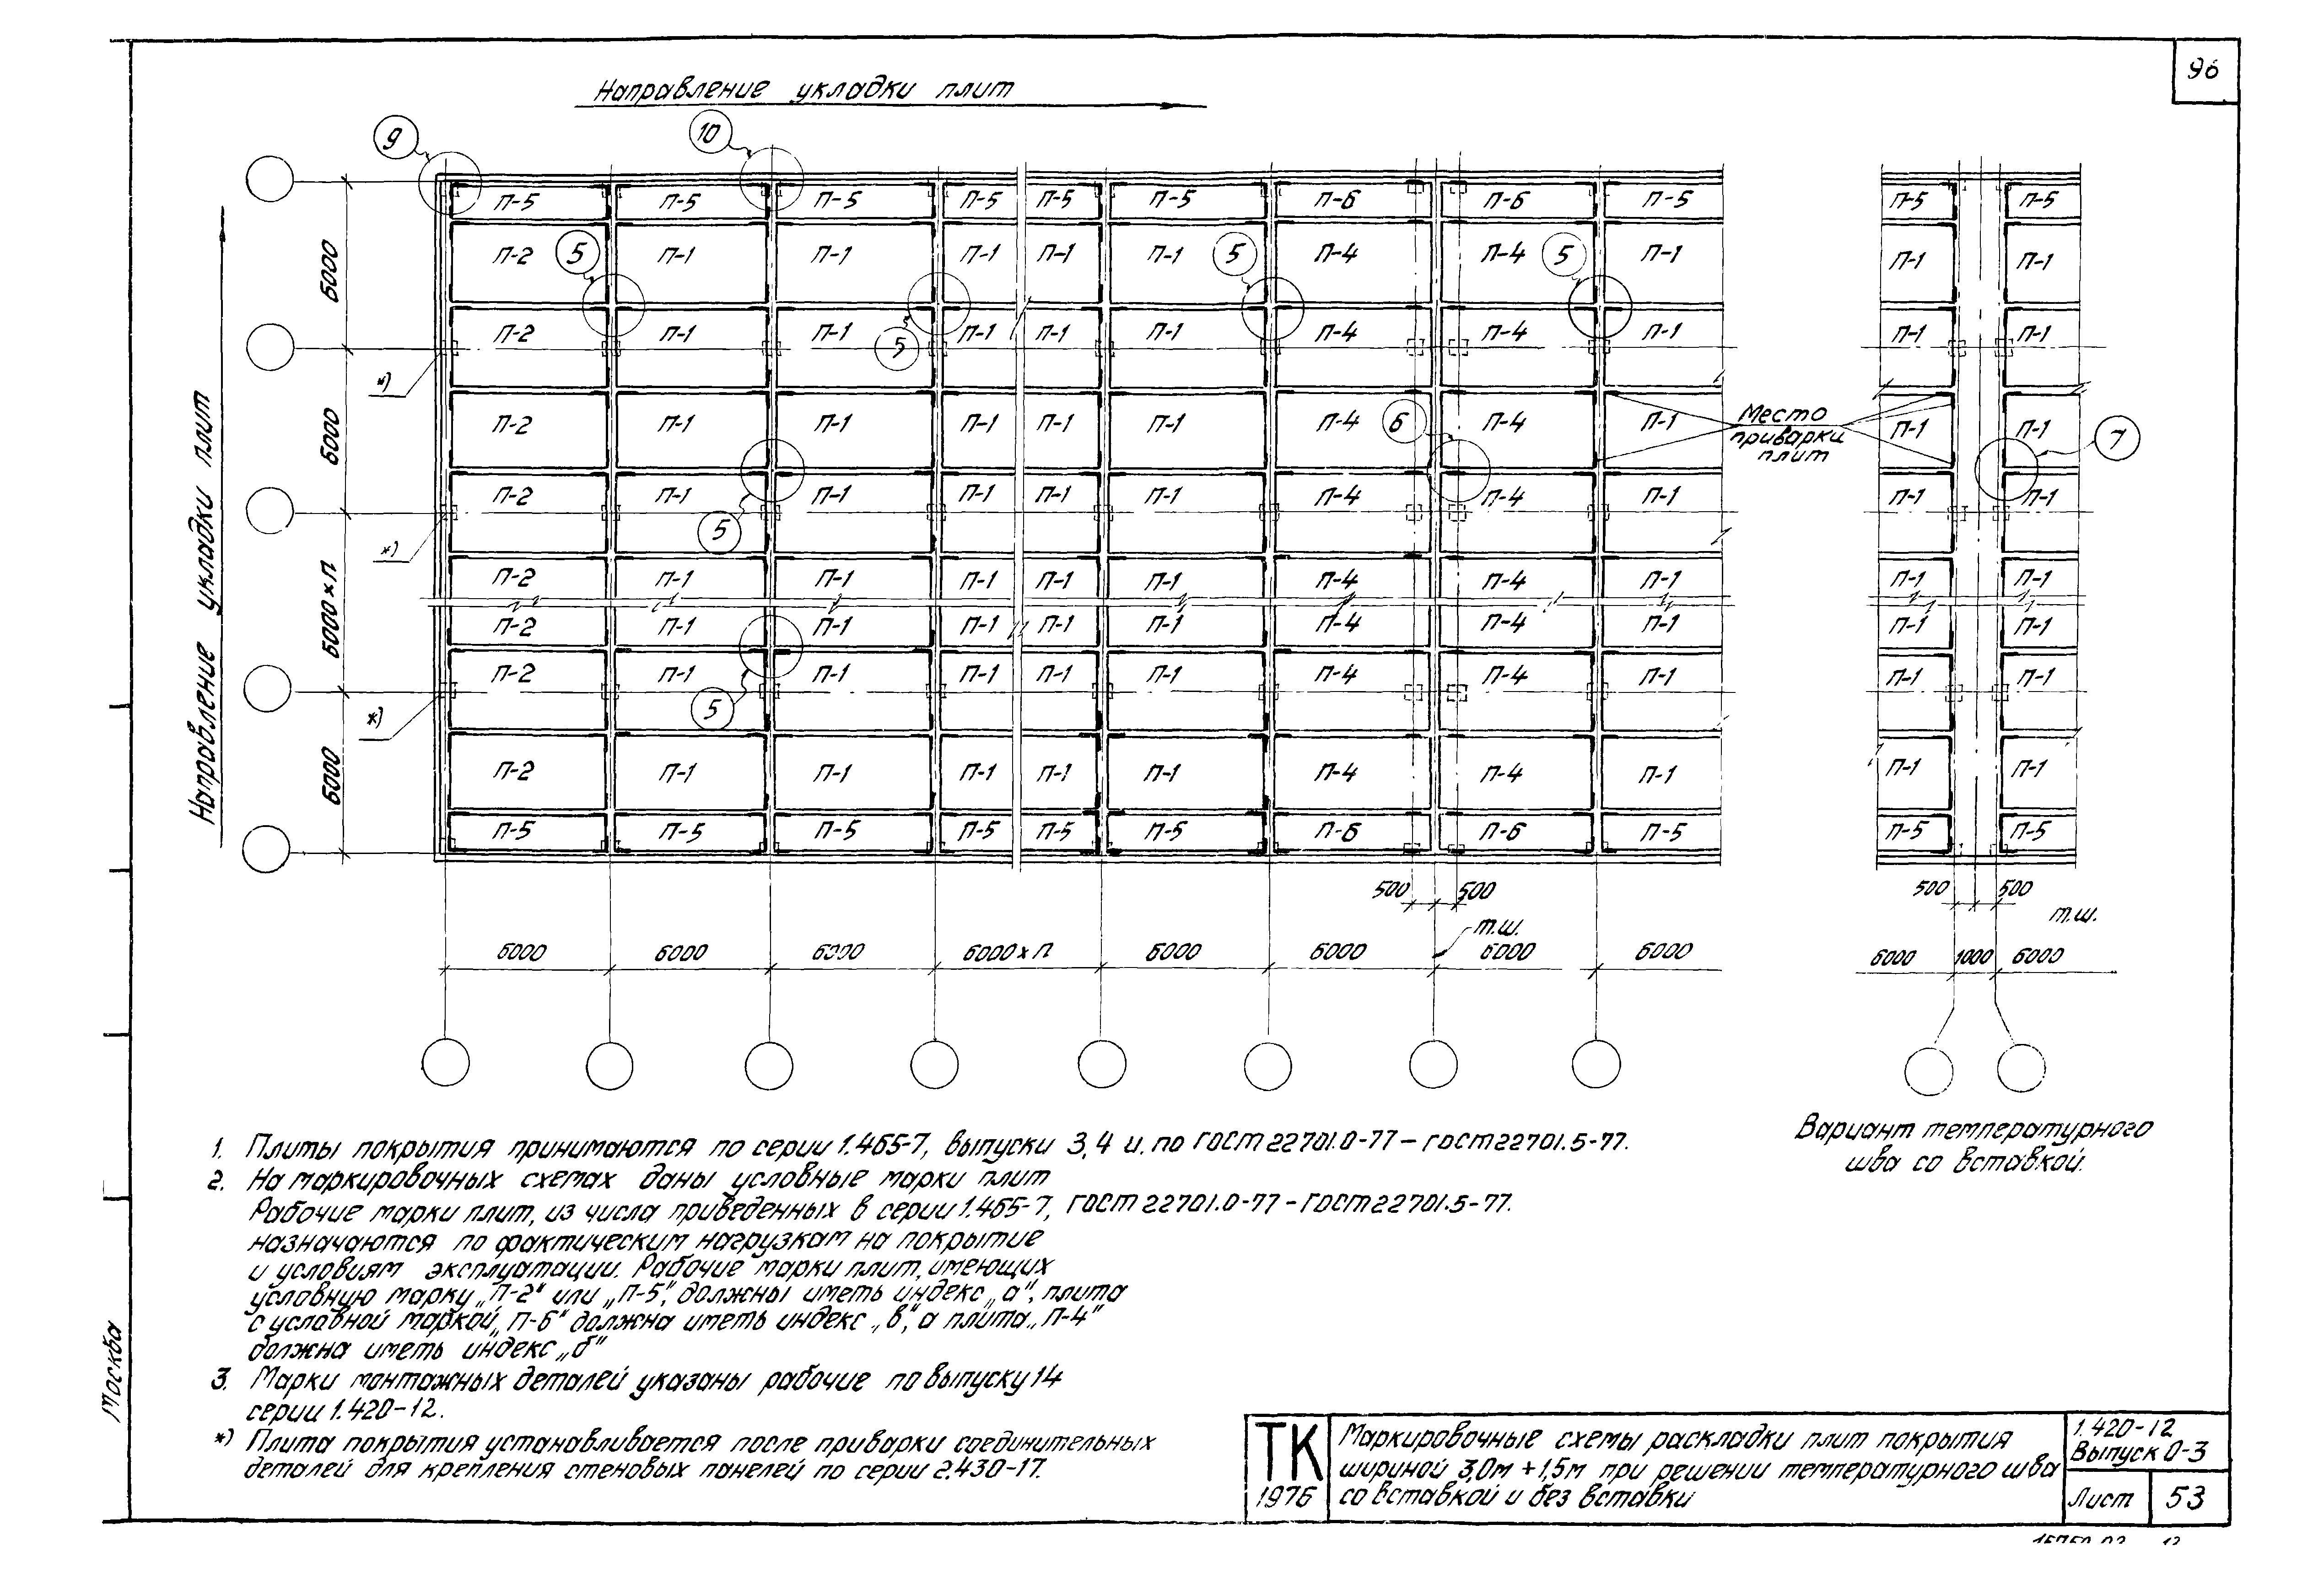 96
Направление укладки плит
9 10
П-5 П-5 П-5 П-5 П-5 П-5 П-6 П-6 П-5 П-5 П-5
П-2 5 П-1 П-1 П-1 П-1 П-1 5 П-4 П-4 5 П-1 П-1 П-1
6000
П-2 П-1 П-1 5 П-1 П-1 П-1 П-4 П-4 П-1 П-1 П-1
*)
6000
П-2 П-1 П-1 П-1 П-1 П-1 П-4 6 П-4 П-1 П-1 П-1 7
Место
приварки
плит
П-2 П-1 П-1 П-1 П-1 П-1 П-4 П-4 П-1 П-1 П-1
5
*)
6000×п
П-2 П-1 П-1 П-1 П-1 П-1 П-4 П-4 П-1 П-1 П-1
П-2 П-1 П-1 П-1 П-1 П-1 П-4 П-4 П-1 П-1 П-1
П-2 П-1 П-1 П-1 П-1 П-1 П-4 П-4 П-1 П-1 П-1
5
*)
6000
П-2 П-1 П-1 П-1 П-1 П-1 П-4 П-4 П-1 П-1 П-1
П-5 П-5 П-5 П-5 П-5 П-5 П-6 П-6 П-5 П-5 П-5
Направление укладки плит
500 500 500 500
т.ш. т.ш.
6000 6000 6000 6000×п 6000 6000 6000 6000 6000 1000 6000
Вариант температурного
шва со вставкой.
1. Плиты покрытия принимаются по серии 1.465-7, выпуски 3,4 и. по ГОСТ 22701.0-77 – ГОСТ 22701.5-77.
2. На маркировочных схемах даны условные марки плит
Рабочие марки плит, из числа приведенных в серии 1.465-7, ГОСТ 22701.0-77 – ГОСТ 22701.5-77.
назначаются по фактическим нагрузкам на покрытие
и условиям эксплуатации. Рабочие марки плит, имеющих
условную марку „П-2" или „П-5", должны иметь индекс „а", плита
с условной маркой „П-6" должна иметь индекс „в", а плита „П-4"
должна иметь индекс „б"
3. Марки монтажных деталей указаны рабочие по выпуску 14
серии 1.420-12.
*) Плита покрытия устанавливается после приварки соединительных
деталей для крепления стеновых панелей по серии 2.430-17.
Москва
ТК
1976
Маркировочные схемы раскладки плит покрытия
шириной 3,0м + 1,5м при решении температурного шва
со вставкой и без вставки
1.420-12
Выпуск 0-3
Лист 53